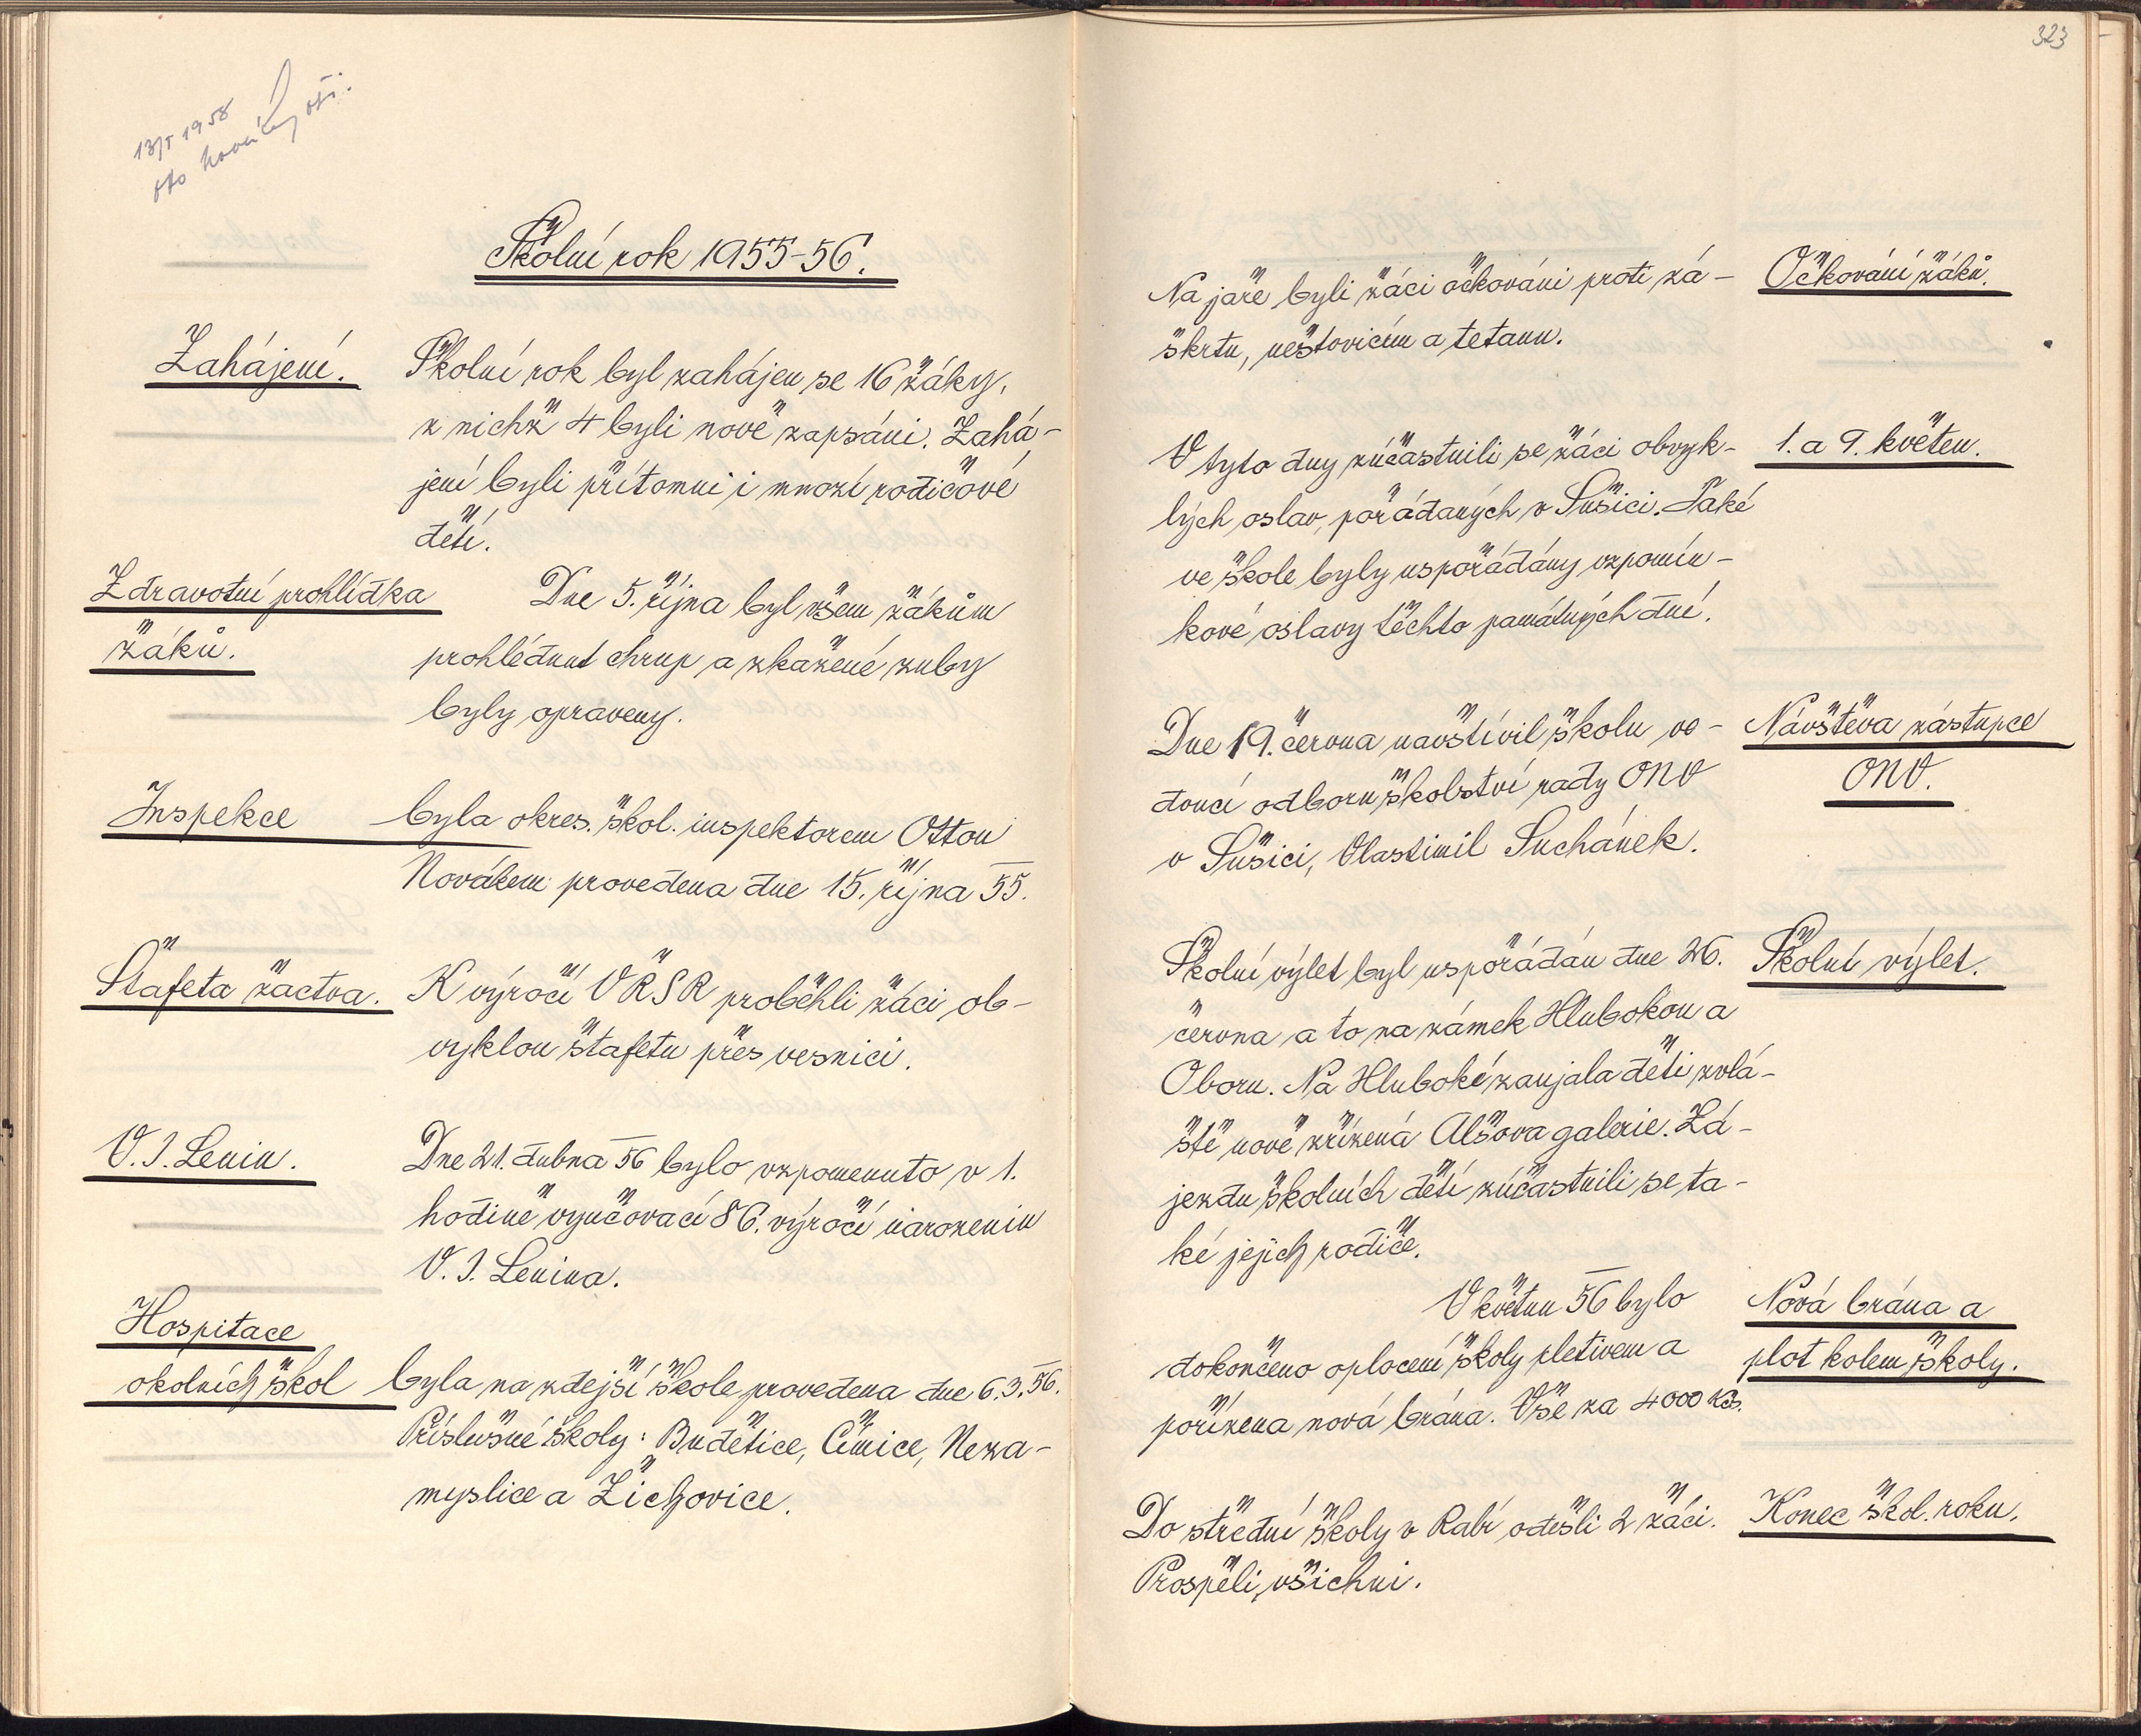 13/5 1958
Oto Nováký oši.
Školní rok 1955-56.
Zahájení.
Školní rok byl zahájen se 16 žáky,
z nichž 4 byli nově zapsáni. Zahá-
jení byli přítomni i mnozí rodičové
dětí.
Zdravotní prohlídka
žáků.
Dne 5. října byl všem žákům
prohlédnut chrup a zkažené zuby
byly opraveny.
Inspekce
byla okres. škol. inspektorem Ottou
Novákem provedena dne 15. října 55.
Štafeta žactva.
K výročí VŘSR proběhli žáci ob-
vyklou štafetu přes vesnici.
V. I. Lenin.
Dne 21. dubna 56 bylo vzpomenuto v 1.
hodině vyučovací 86. výročí narozenin
V. I. Lenina.
Hospitace
okolních škol
byla na zdejší škole provedena dne 6.3.56.
Příslušné školy: Budětice, Čímice, Neza-
myslice a Žichovice.
323
Na jaře byli žáci očkováni proti zá-
škrtu, neštovicím a tetanu.
Očkování žáků.
V tyto dny zúčastnili se žáci obvyk-
lých oslav, pořádaných v Sušici. Také
ve škole byly uspořádány vzpomín-
kové oslavy těchto památných dní.
1. a 9. květen.
Dne 19. června navštívil školu ve-
doucí odboru školství rady ONV
v Sušici, Vlastimil Suchánek.
Návštěva zástupce
ONV.
Školní výlet byl uspořádán dne 26.
června a to na zámek Hlubokou a
Oboru. Na Hluboké zaujala děti zvlá-
ště nově zřízená Alšova galerie. Zá-
jezdu školních dětí zúčastnili se ta-
ké jejich rodiče.
Školní výlet.
V květnu 56 bylo
dokončeno oplocení školy pletivem a
pořízena nová brána. Vše za 4000 Kčs.
Nová brána a
plot kolem školy.
Do střední školy v Rabí odešli 2 žáci.
Prospěli všichni.
Konec škol. roku.